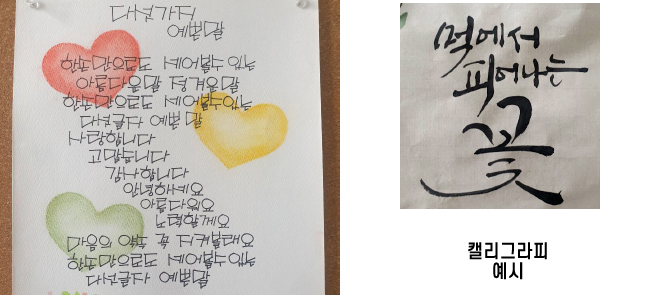 다섯가지
예쁜말
한손만으로도 세어볼수 있는
아름다운말 정겨운말
한손만으로도 세어볼수 있는
다섯글자 예쁜 말
사랑합니다
고맙습니다
감사합니다
안녕하세요
아름다워요
노력할게요
마음의 약속 꼭 지켜볼래요
한손만으로도 세어볼수 있는
다섯글자 예쁜말
먹에서
피어나는
꽃
캘리그라피
예시